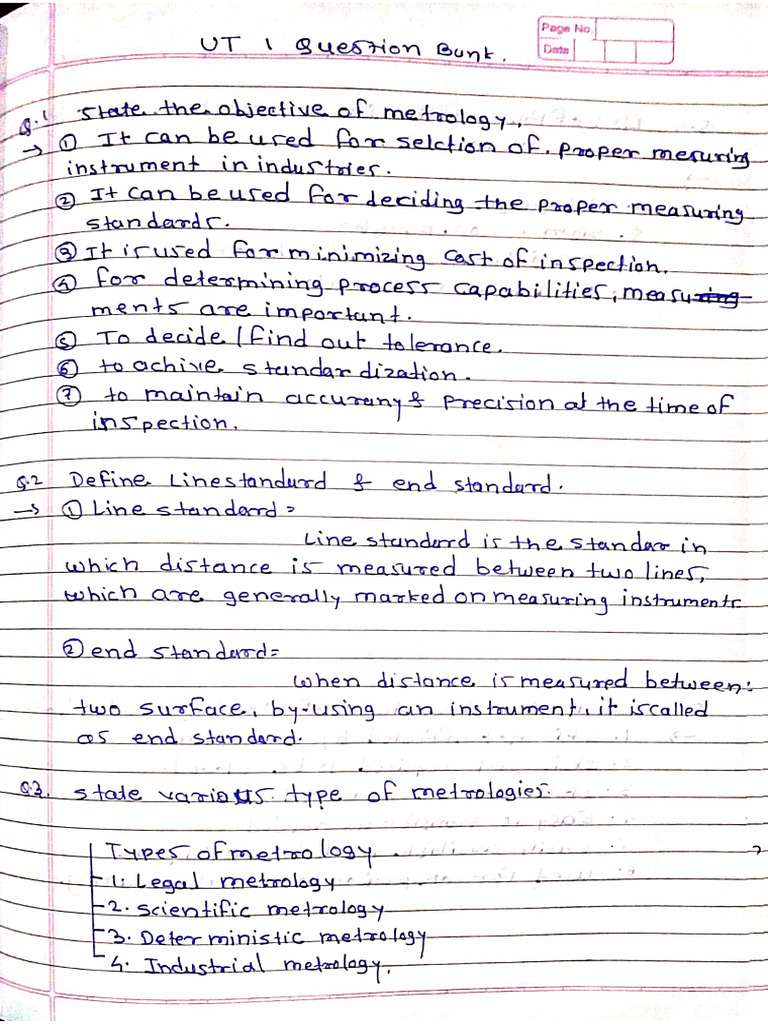 Page No.
Date
UT 1 Question Bunk.
Q.1 State the objective of metrology.
→ ① It can be used for selction of. proper mesuring
instrument in industries.
② It can be used for deciding the proper measuring
standards.
③ It is used for minimizing cost of inspection.
④ for determining process capabilities, measuring
ments are important.
⑤ To decide / find out tolerance.
⑥ to achive standardization.
⑦ to maintain accurany & precision at the time of
inspection.
Q.2 Define Linestandurd & end standard.
→ ① Line standard =
Line standard is the standar in
which distance is measured between two lines,
which are generally marked on measuring instruments.
② end standard =
when distance is measured between
two surface, by using an instrument, it is called
as end standard.
Q3. state various type of metrologies.
Types of metrology
1. Legal metrology
2. Scientific metrology
3. Deterministic metrology
4. Industrial metrology.